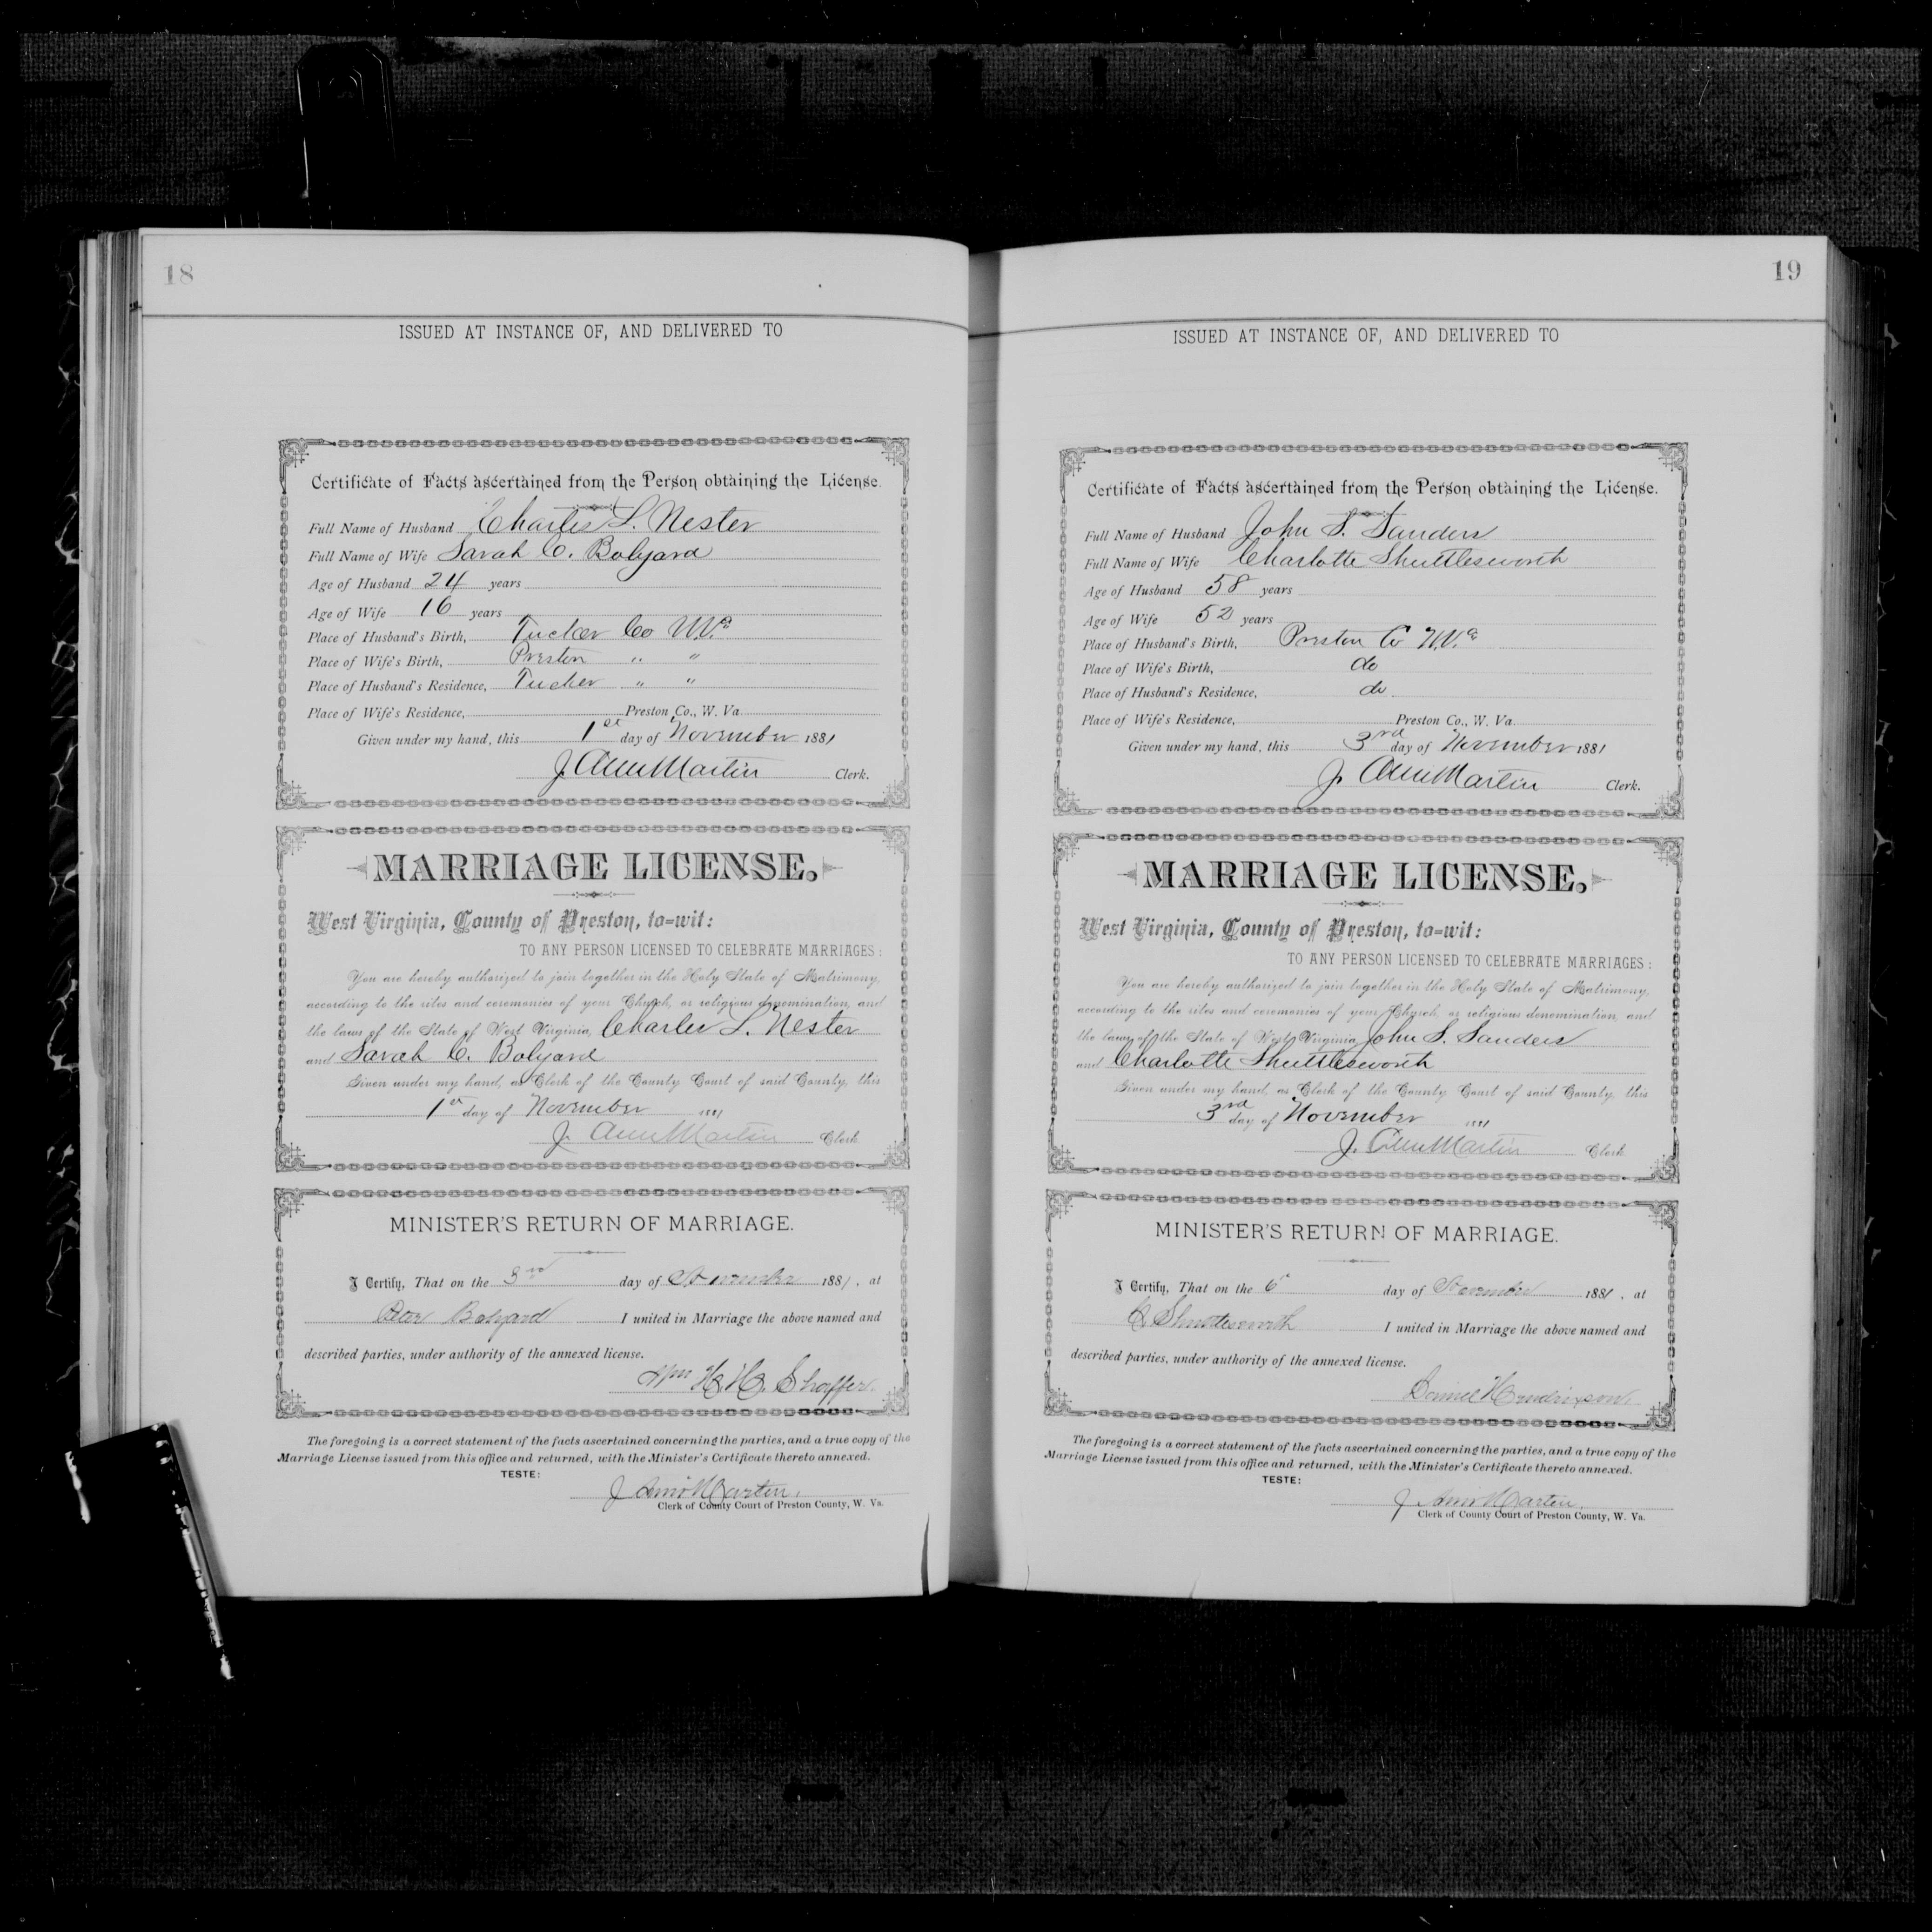 18
ISSUED AT INSTANCE OF, AND DELIVERED TO
Certificate of Facts ascertained from the Person obtaining the License.
Full Name of Husband Charles L. Nester
Full Name of Wife Sarah C. Bolyard
Age of Husband 24 years
Age of Wife 16 years
Place of Husband's Birth, Tucker Co W.Va
Place of Wife's Birth, Preston " "
Place of Husband's Residence, Tucker " "
Place of Wife's Residence, Preston Co., W. Va
Given under my hand, this 1st day of November 1881
J. Ami Martin Clerk.
MARRIAGE LICENSE.
West Virginia, County of Preston, to-wit:
TO ANY PERSON LICENSED TO CELEBRATE MARRIAGES:
You are hereby authorized to join together in the Holy State of Matrimony,
according to the rites and ceremonies of your Church, or religious denomination, and
the laws of the State of West Virginia, Charles L. Nester
and Sarah C. Bolyard
Given under my hand, as Clerk of the County Court of said County, this
1st day of November 1881
J. Ami Martin Clerk
MINISTER'S RETURN OF MARRIAGE.
I Certify, That on the 3rd day of November 1881, at
Peter Bolyard I united in Marriage the above named and
described parties, under authority of the annexed license.
Wm H. H. Shaffer.
The foregoing is a correct statement of the facts ascertained concerning the parties, and a true copy of the
Marriage License issued from this office and returned, with the Minister's Certificate thereto annexed.
TESTE:
J Ami Martin,
Clerk of County Court of Preston County, W. Va.
19
ISSUED AT INSTANCE OF, AND DELIVERED TO
Certificate of Facts ascertained from the Person obtaining the License.
Full Name of Husband John S. Sanders
Full Name of Wife Charlotte Shuttlesworth
Age of Husband 58 years
Age of Wife 52 years
Place of Husband's Birth, Preston Co W.Va
Place of Wife's Birth, do
Place of Husband's Residence, do
Place of Wife's Residence, Preston Co., W. Va.
Given under my hand, this 3rd day of November 1881
J. Ami Martin Clerk.
MARRIAGE LICENSE.
West Virginia, County of Preston, to-wit:
TO ANY PERSON LICENSED TO CELEBRATE MARRIAGES:
You are hereby authorized to join together in the Holy State of Matrimony,
according to the rites and ceremonies of your Church, or religious denomination, and
the laws of the State of West Virginia John S. Sanders
and Charlotte Shuttlesworth
Given under my hand, as Clerk of the County Court of said County, this
3rd day of November 1881
J. Ami Martin Clerk
MINISTER'S RETURN OF MARRIAGE.
I Certify, That on the 6 day of November 1881, at
C. Shuttlesworth I united in Marriage the above named and
described parties, under authority of the annexed license.
The foregoing is a correct statement of the facts ascertained concerning the parties, and a true copy of the
Marriage License issued from this office and returned, with the Minister's Certificate thereto annexed.
TESTE:
J Ami Martin,
Clerk of County Court of Preston County, W. Va.